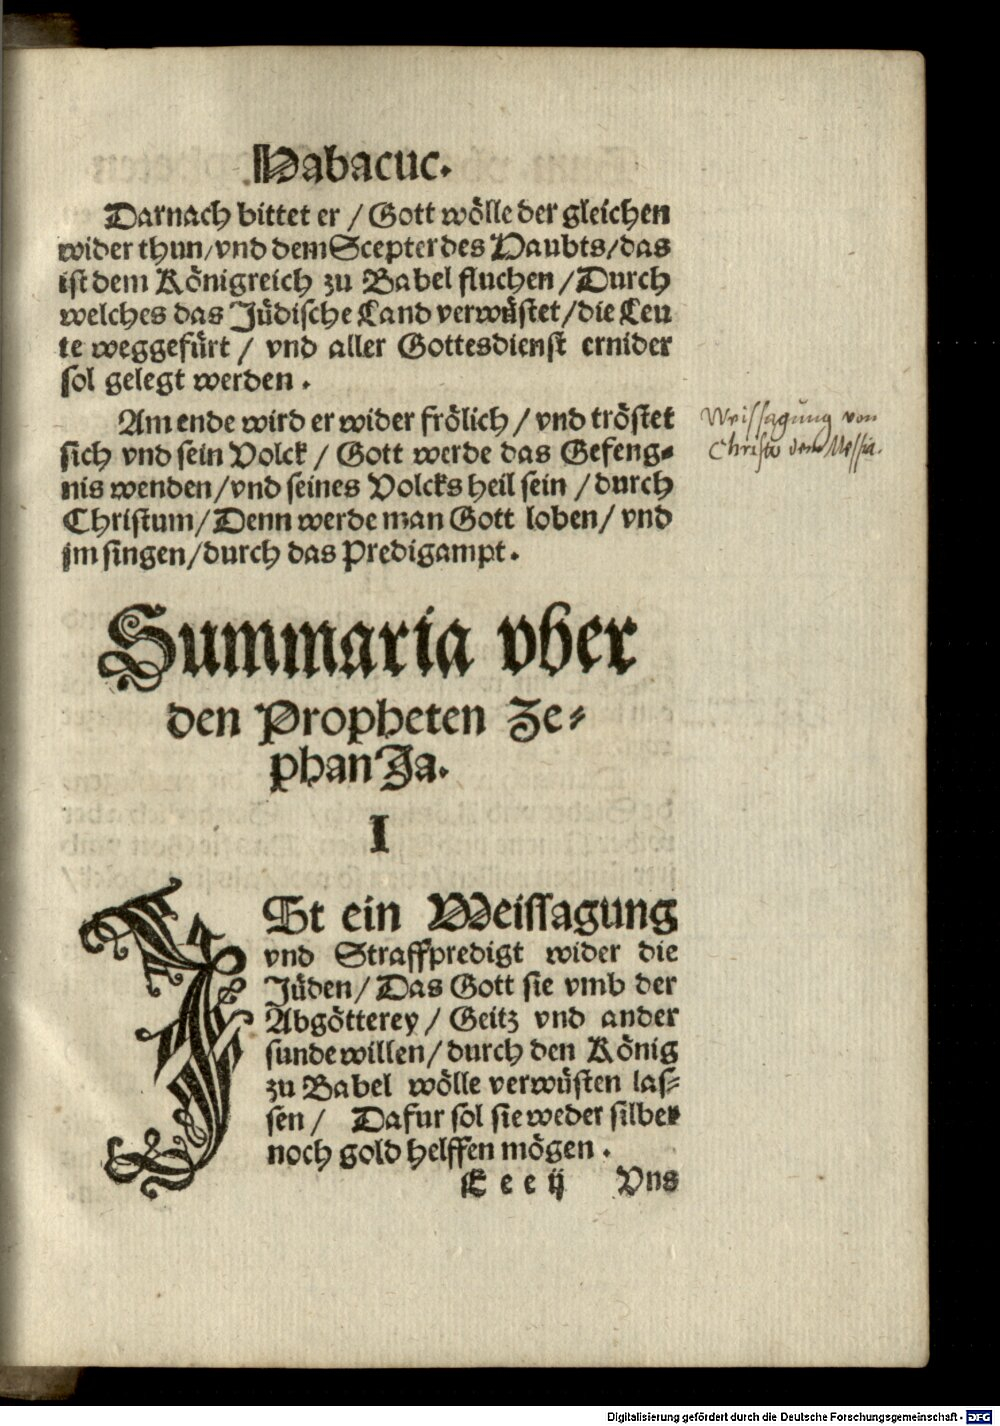 Habacuc.
Darnach bittet er / Gott wölle der gleichen
wider thun/vnd dem Scepter des Haubts/das
ist dem Königreich zu Babel fluchen /Durch
welches das Jüdische Land verwüstet/die Leu
te weggefürt / vnd aller Gottesdienst ernider
sol gelegt werden .
Am ende wird er wider frölich / vnd tröstet
sich vnd sein Volck / Gott werde das Gefeng-
nis wenden/vnd seines Volcks heil sein /durch
Christum/Denn werde man Gott loben/ vnd
jm singen/durch das Predigampt.
Weissagung von
Christo dem Messia.
Summaria vber
den Propheten Ze-
phanJa.
I
ISt ein Weissagung
vnd Straffpredigt wider die
Jüden/ Das Gott sie vmb der
Abgötterey/ Geitz vnd ander
sunde willen/durch den König
zu Babel wölle verwüsten las-
sen / Dafur sol sie weder silber
noch gold helffen mögen .
E e e ij Vns
Digitalisierung gefördert durch die Deutsche Forschungsgemeinschaft - DFG